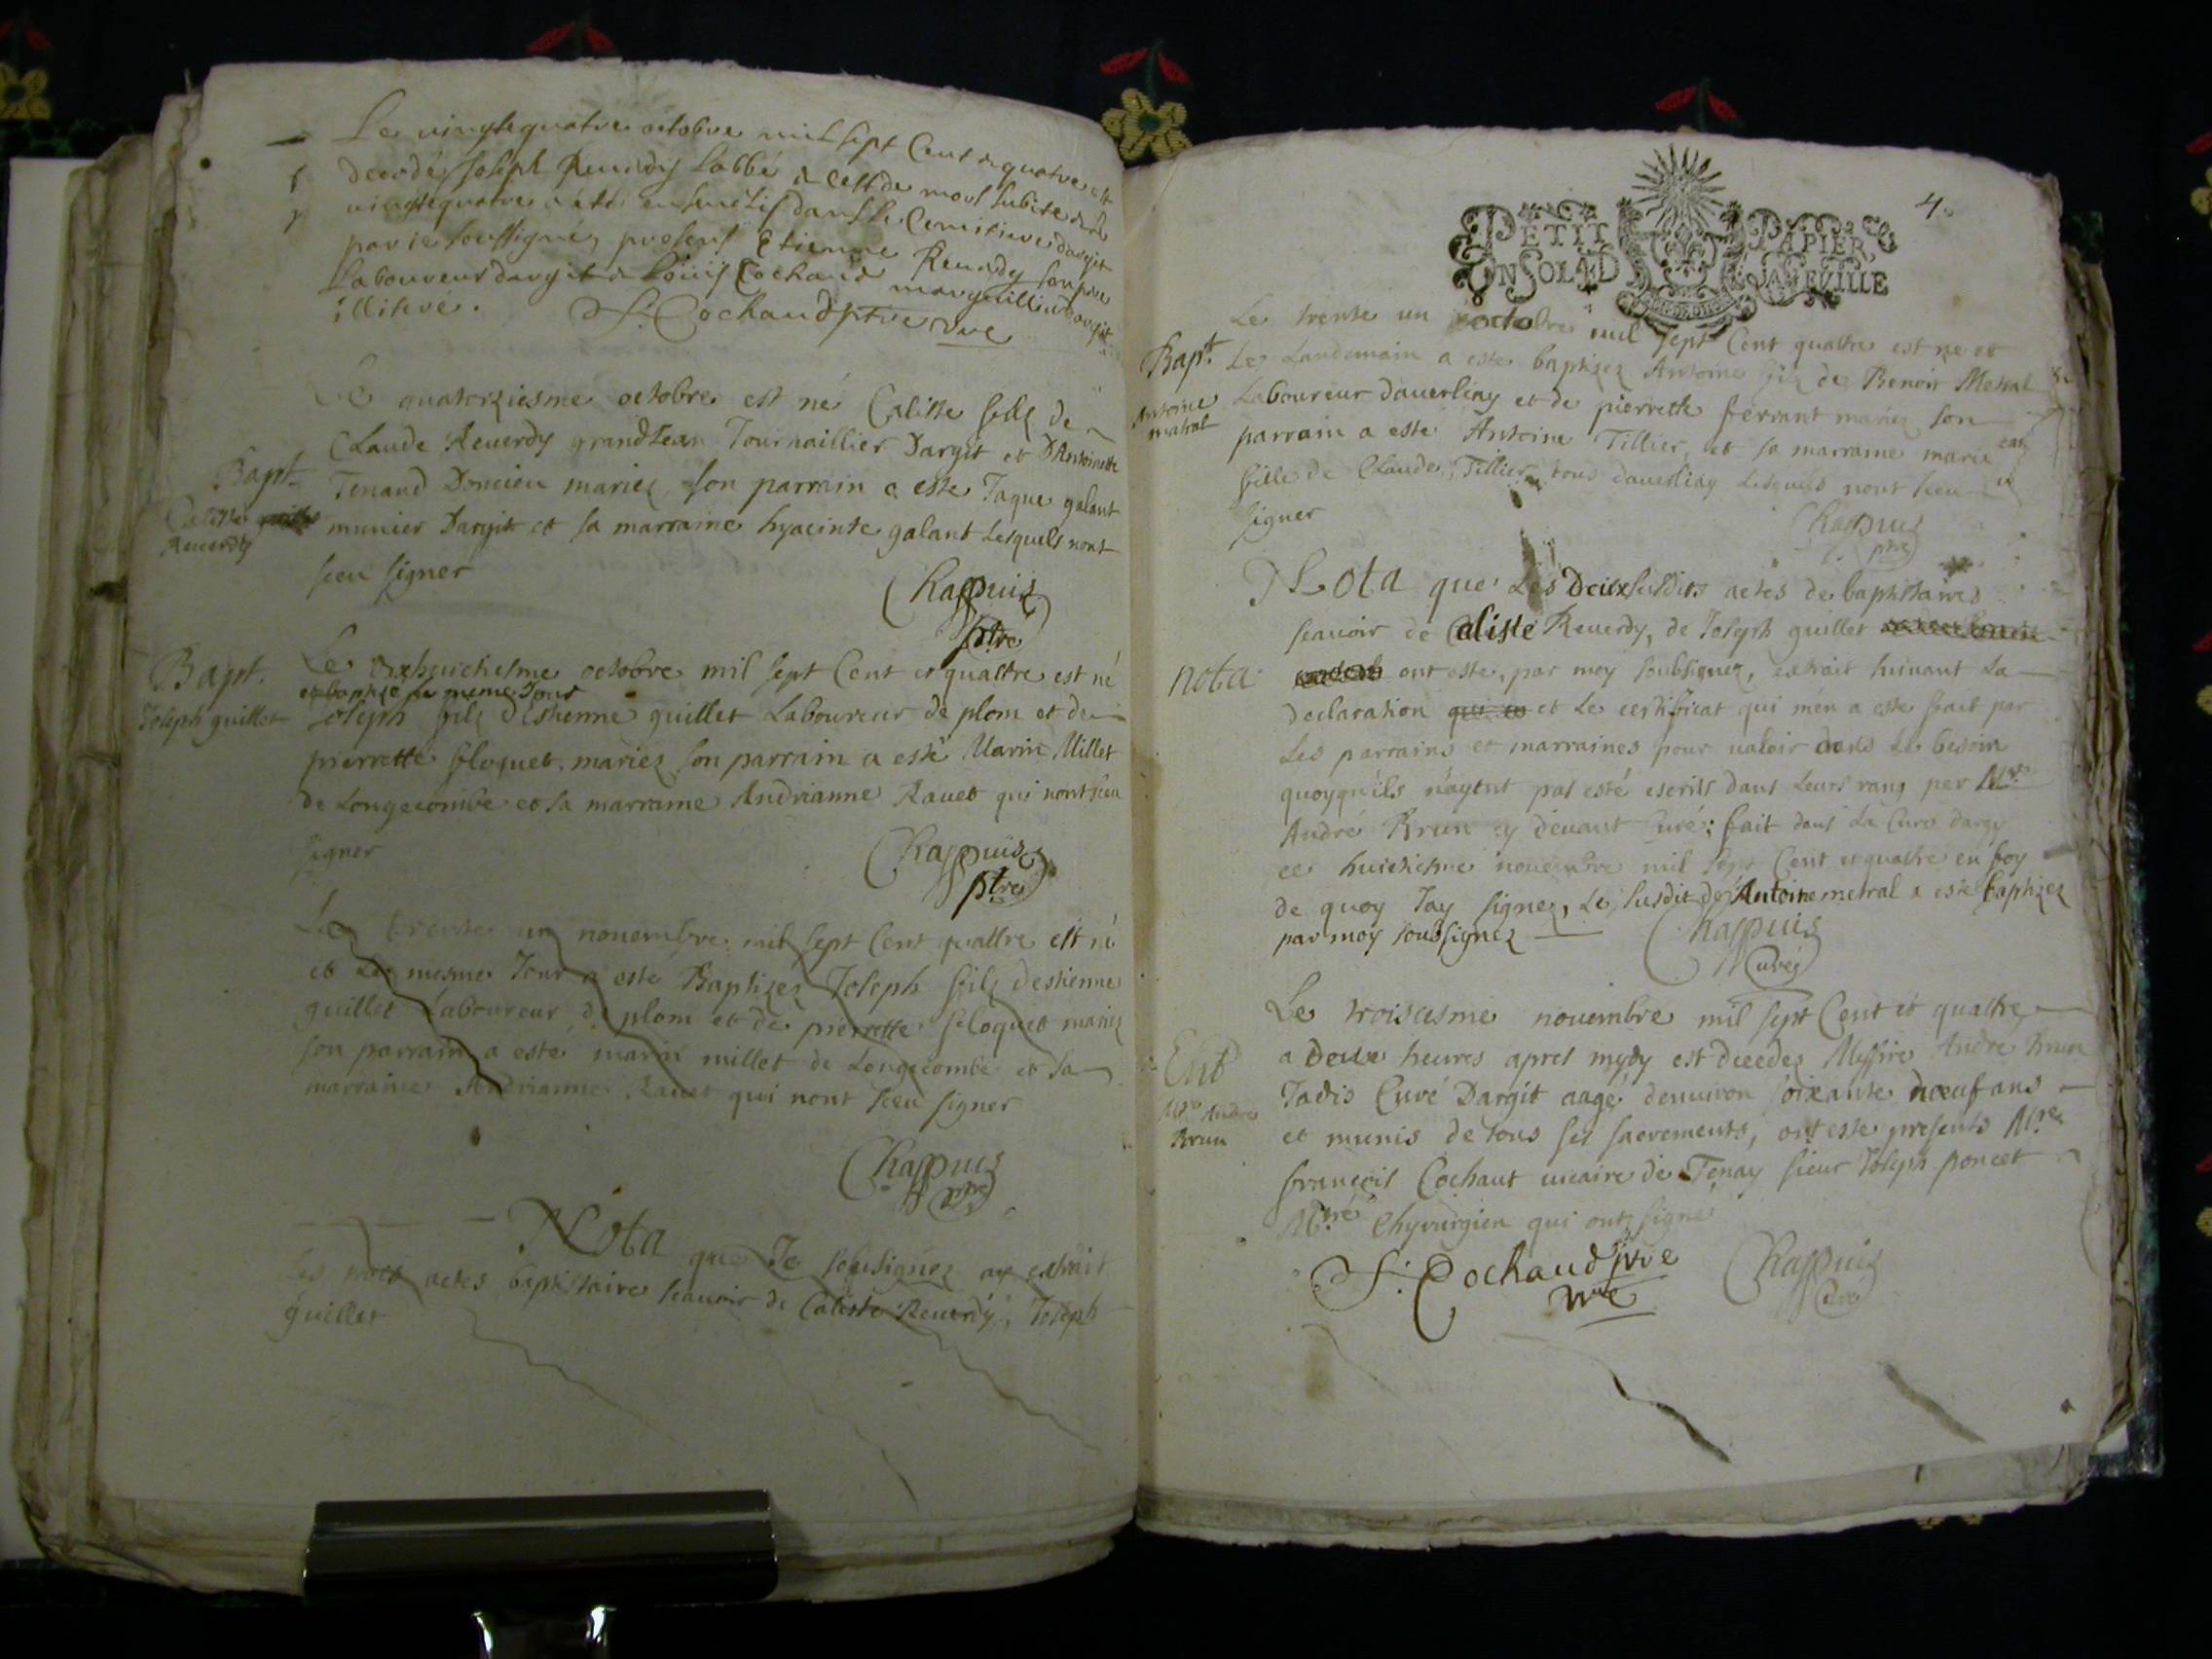 Le vingtequatre octobre mil sept Cent & quatre est
decede Joseph Reverdy Labbé & cest de mort subite & le
vingtequatre a eté ensevelis dans le Cemitiere dargit
par ie soussigné, present Etienne Reverdy son pere
Laboureur dargit & Loüis Cochand marguillier dargit
illiteré. f. Cochand ptre vre
Le quatorziesme octobre est né Caliste filz de
Claude Reuerdy grand Jean Tournaillier Dargit et DAntoinette
Bapt. Tenand Doncieu mariez, son parrain a este Jaque galant
Caliste
Reuerdy
munier Dargit et sa marraine hyacinte galant Lesquels nont
sceu signer
Chappuis
ptre
Bapt. Le dixhuictiesme octobre mil sept Cent et quattre est né
et baptisé le meme Jour
Joseph guillet Joseph filz destienne guillet Laboureur de plom et de
pierrette floquet, mariez son parrain a esté Marin Millet
de Longecombe et sa marraine Andrianne Rauet qui nont sceu
signer
Chappuis
ptre
Le trente un nouembre mil sept Cent quattre est né
et Le mesme Jour a esté Baptizéz Joseph filz destienne
guillet Laboureur de plom et de pierrette floquet mariez
son parrain a esté marin millet de Longecombe et sa
marraine Andrianne Rauet qui nont sceu signer
Chappuis
ptre
Nota que Je soubsignez ay extrait
Les trois actes baptistaire scauoir de Caliste Reuerdy, Joseph
guillet
4.
PETIT PAPIER
UN SOL 4 D LA FEVILLE
Le trente un octobre mil sept Cent quattre est né et
Bapt. Le Landemain a este baptizez Antoine filz de Benoit Metral
Antoine
matral
Laboureur dauerliay et de pierrette ferrant mariez son
parrain a esté Antoine Tillier, et sa marraine marie
fille de Claude Tillier tous dauerliay Lesquels nont sceu
signer
Chappuis
ptre
Nota que Les Deux susdits actes de baptistaires
scauoir de Caliste Reuerdy, de Joseph guillet
nota ont este, par moy soubsignez, extrait suiuant La
declaration qui et Le certificat qui men a este fait par
Les parrains et marraines pour ualoir dans Le besoin
quoyquils nayent pas esté escrits dans Leurs rang per Mre
André Brun cy deuant Curé; fait dans La Cure dargy
ce huictiesme nouembre mil sept Cent et quatre en foy
de quoy Jay signez, Le susdit Antoine metral a este baptizez
par moy soubsignez Chappuis
Curé
Le troisiesme nouembre mil sept Cent et quattre
a Deux heures apres mydy est decedez Messire André Brun
Ent Jadis Curé Dargit aagé denuiron soixante nœuf ans
Mre Andre
Brun
et munis de tous ses sacrements, ont este presents Mre
françois Cochaut uicaire de Tenay sieur Joseph poncet
Mtre Chyrurgien qui ont signé
f. Cochaud ptre
vre
Chappuis
Curé